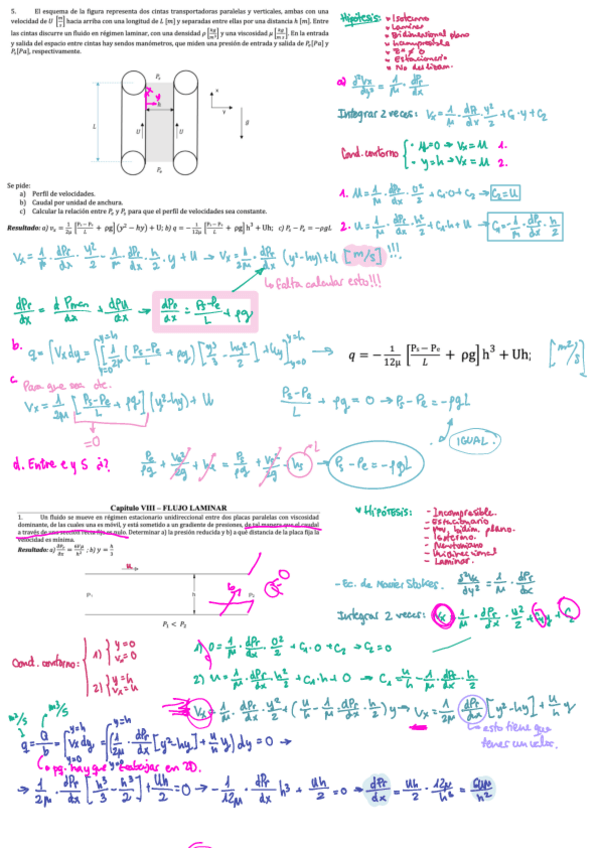 5. El esquema de la figura representa dos cintas transportadoras paralelas y verticales, ambas con una
velocidad de U [m/s] hacia arriba con una longitud de L [m] y separadas entre ellas por una distancia h [m]. Entre
las cintas discurre un fluido en régimen laminar, con una densidad ρ [kg/m³] y una viscosidad μ [kg/m·s]. En la entrada
y salida del espacio entre cintas hay sendos manómetros, que miden una presión de entrada y salida de Pₑ[Pa] y
Pₛ[Pa], respectivamente.
Pₛ
h
L
U
U
x
y
g
Pₑ
Se pide:
a) Perfil de velocidades.
b) Caudal por unidad de anchura.
c) Calcular la relación entre Pₑ y Pₛ para que el perfil de velocidades sea constante.
Resultado: a) vₓ = 1/2μ [Pₛ−Pₑ/L + ρg] (y² − hy) + U; b) q = − 1/12μ [Pₛ−Pₑ/L + ρg] h³ + Uh; c) Pₛ − Pₑ = −ρgL
Hipótesis:
• Isotermo
• Laminar
• Bidimensional plano
• Incompresible
• Estacionario
• No deslizam.
a) d²Vx/dy² = 1/μ · dPr/dx
Integrar 2 veces: Vx = 1/μ · dPr/dx · y²/2 + C₁·y + C₂
Cond. contorno
• y=0 → Vx = U 1.
• y=h → Vx = U 2.
1. U = 1/μ · dPr/dx · 0²/2 + C₁·0 + C₂ → C₂ = U
2. U = 1/μ · dPr/dx · h²/2 + C₁·h + U → C₁ = -1/μ · dPr/dx · h/2
Vx = 1/μ · dPr/dx · y²/2 - 1/μ · dPr/dx · h/2 · y + U → Vx = 1/2μ · dPr/dx (y²-hy) + U [m/s] !!!
↳ Falta calcular esto!!!
dPr/dx = Ps-Pe/L + ρg
b. q = ∫Vx dy = [1/2μ (Ps-Pe/L + ρg) [y³/3 - hy²/2] + Uy] y=h y=0 → q = − 1/12μ [Pₛ−Pₑ/L + ρg] h³ + Uh; [m²/s]
c. Para que sea cte.
Vx = 1/2μ [Ps-Pe/L + ρg] (y²-hy) + U
=0
Ps-Pe/L + ρg = 0 → Ps-Pe = -ρgL
IGUAL.
d. Entre e y s ¿?
Pe/ρg + Ve²/2g + he = Ps/ρg + Vs²/2g + hs → Ps-Pe = -ρgL
L
Capítulo VIII – FLUJO LAMINAR
1. Un fluido se mueve en régimen estacionario unidireccional entre dos placas paralelas con viscosidad
dominante, de las cuales una es móvil, y está sometido a un gradiente de presiones, de tal manera que el caudal
a través de una sección recta fija es nulo. Determinar a) la presión reducida y b) a qué distancia de la placa fija la
velocidad es mínima.
Resultado: a) ∂Pᵣ/∂x = 6Uμ/h²; b) y = h/3
P₁
h
P₂
P₁ < P₂
• Hipótesis:
- Incompresible.
- Estacionario
- Mov. bidim. plano.
- Isotermo.
- Newtoniano
- Unidireccional
- Laminar.
- Ec. de Navier Stokes. d²Vx/dy² = 1/μ · dPr/dx
Integrar 2 veces: Vx = 1/μ · dPr/dx · y²/2 + C₁y + C₂
Cond. contorno:
1) y=0 vx=0
2) y=h vx=U
1) 0 = 1/μ · dPr/dx · 0²/2 + C₁·0 + C₂ → C₂=0
2) U = 1/μ · dPr/dx · h²/2 + C₁·h + 0 → C₁ = U/h - 1/μ · dPr/dx · h/2
Vx = 1/μ · dPr/dx · y²/2 + (U/h - 1/μ · dPr/dx · h/2) y → Vx = 1/2μ · dPr/dx [y²-hy] + U/h y
esto tiene que
tener un valor.
m²/s
m³/s
q = Q/b = ∫Vx dy = ∫(1/2μ · dPr/dx [y²-hy] + U/h y) dy = 0 →
pq. hay que trabajar en 2D.
→ 1/2μ · dPr/dx [h³/3 - h³/2] + Uh/2 = 0 → -1/12μ · dPr/dx h³ + Uh/2 = 0 → dPr/dx = Uh/2 · 12μ/h³ = 6Uμ/h²